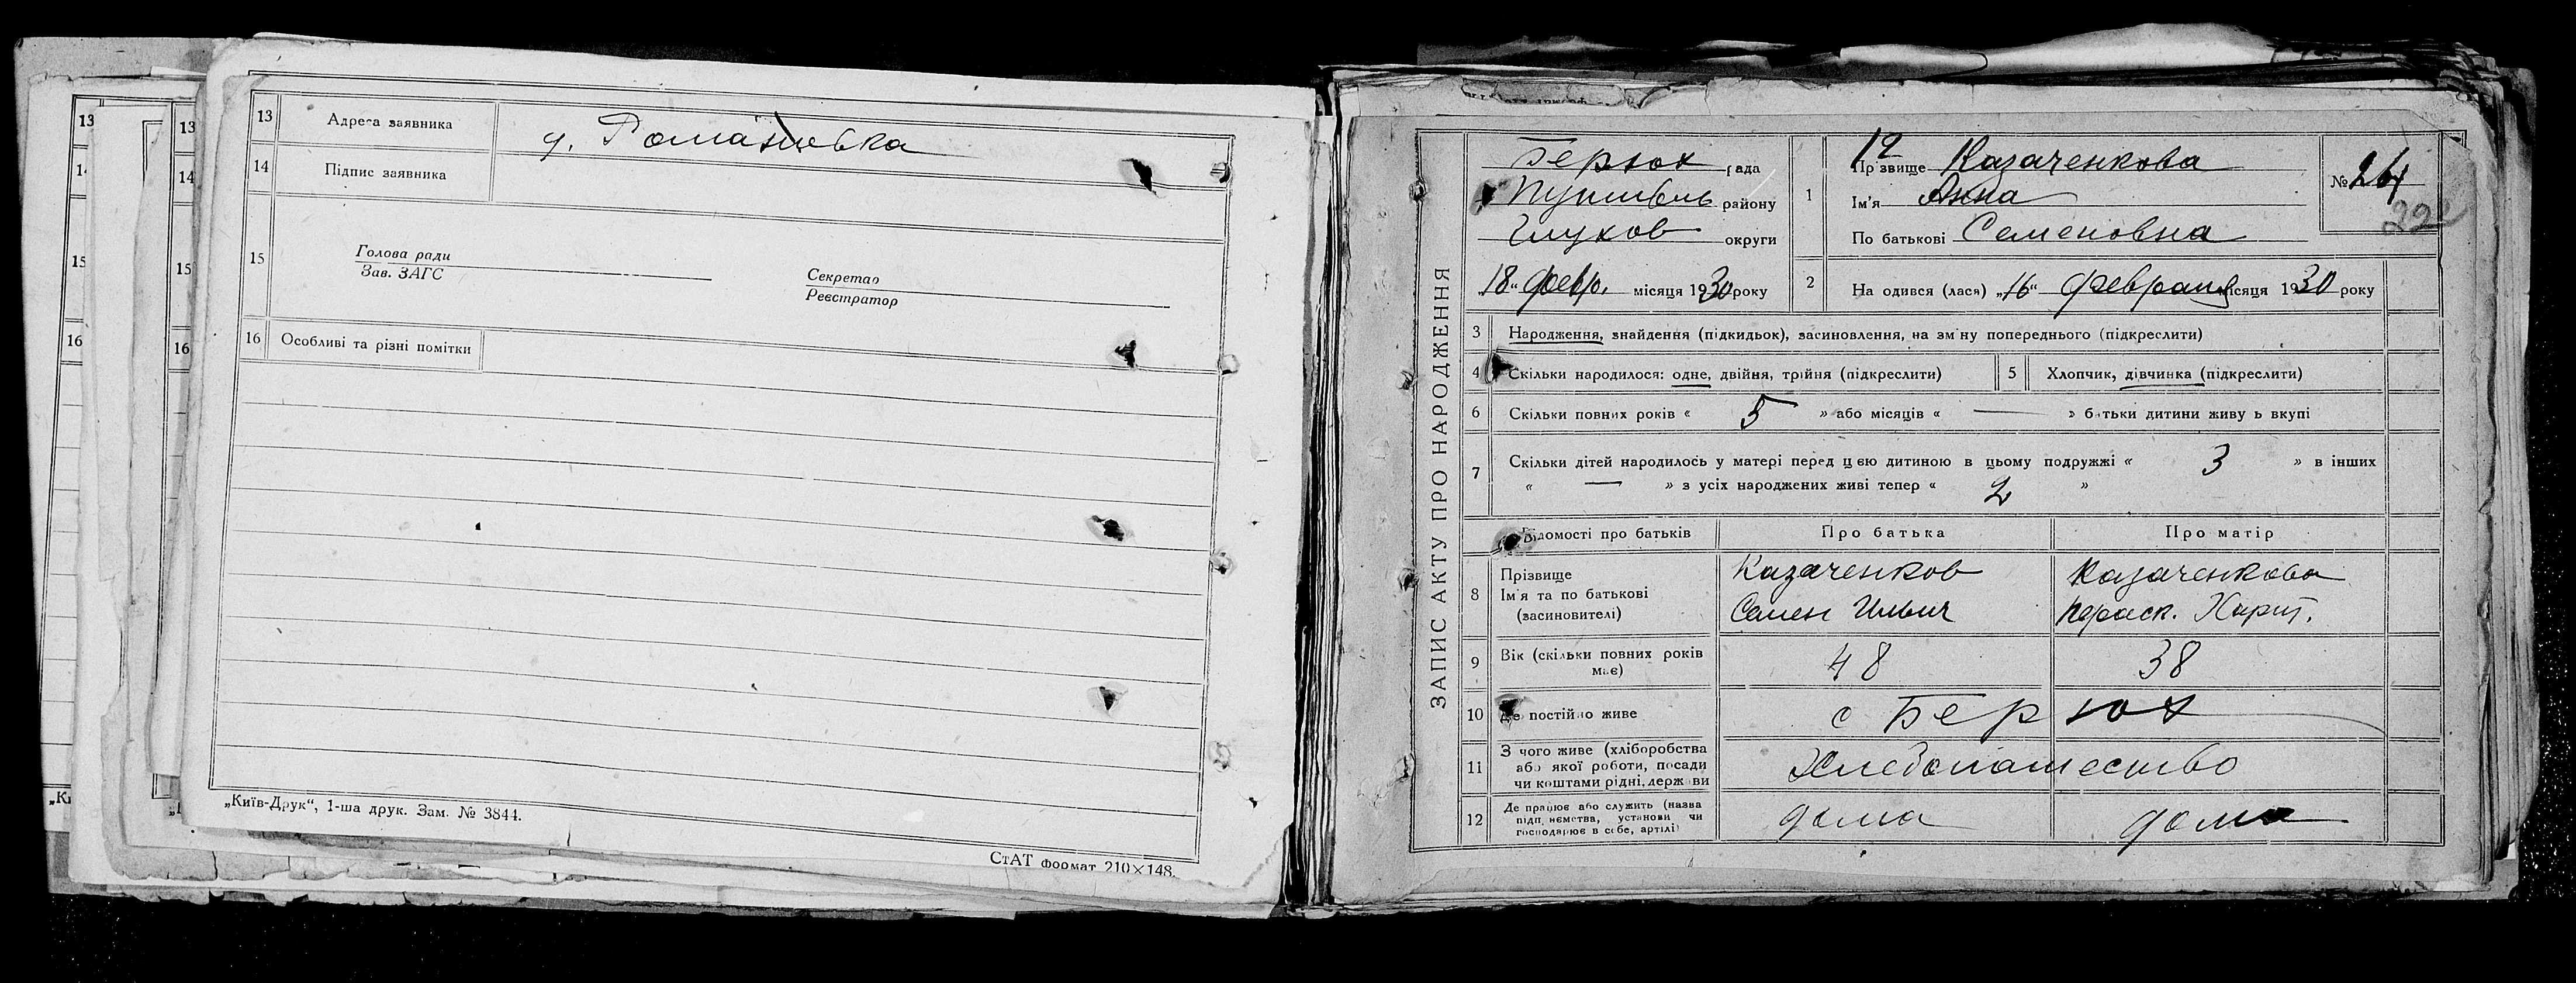 13 Адреса заявника д. Романовка
14 Підпис заявника
15 Голова ради
Зав. ЗАГС
Секретар
Реєстратор
16 Особливі та різні помітки
„Київ-Друк“, 1-ша друк. Зам. № 3844.
СтАТ формат 210×148.
13
14
15
16
ЗАПИС АКТУ ПРО НАРОДЖЕННЯ
Берюх рада
Путивль району
Глухов округи
„18“ февр. місяця 1930 року
12
1 Прізвище Казаченкова
Ім'я Анна
По батькові Семеновна
№ 24
22
2 Народився (лася) „16“ февраля місяця 1930 року
3 Народження, знайдення (підкидьок), засиновлення, на зміну попереднього (підкреслити)
4 Скільки народилося: одне, двійня, трійня (підкреслити)
5 Хлопчик, дівчинка (підкреслити)
6 Скільки повних років « 5 » або місяців « — » батьки дитини живуть вкупі
7 Скільки дітей народилось у матері перед цією дитиною в цьому подружжі « 3 » в інших
« — » з усіх народжених живі тепер « 2 »
Відомості про батьків Про батька Про матір
8 Прізвище Казаченков Казаченкова
Ім'я та по батькові Семен Ильич Параск. Харит.
(засиновителі)
9 Вік (скільки повних років має) 48 38
10 Де постійно живе с Берюх
11 З чого живе (хліборобства
або якої роботи, посади
чи коштами рідні, держави Хлебопашество
12 Де працює або служить (назва
підприємства, установи чи
господарює в себе, артілі) дома дома